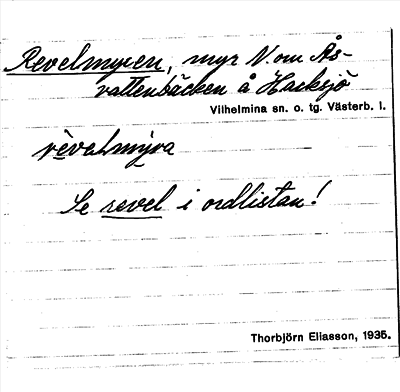 Revelmyren, myr N. om Ås-
vattenbäcken å Harksjö
Vilhelmina sn. o. tg. Västerb. l.
rèvalmỳra
Se revel i ordlistan!
Thorbjörn Eliasson, 1935.